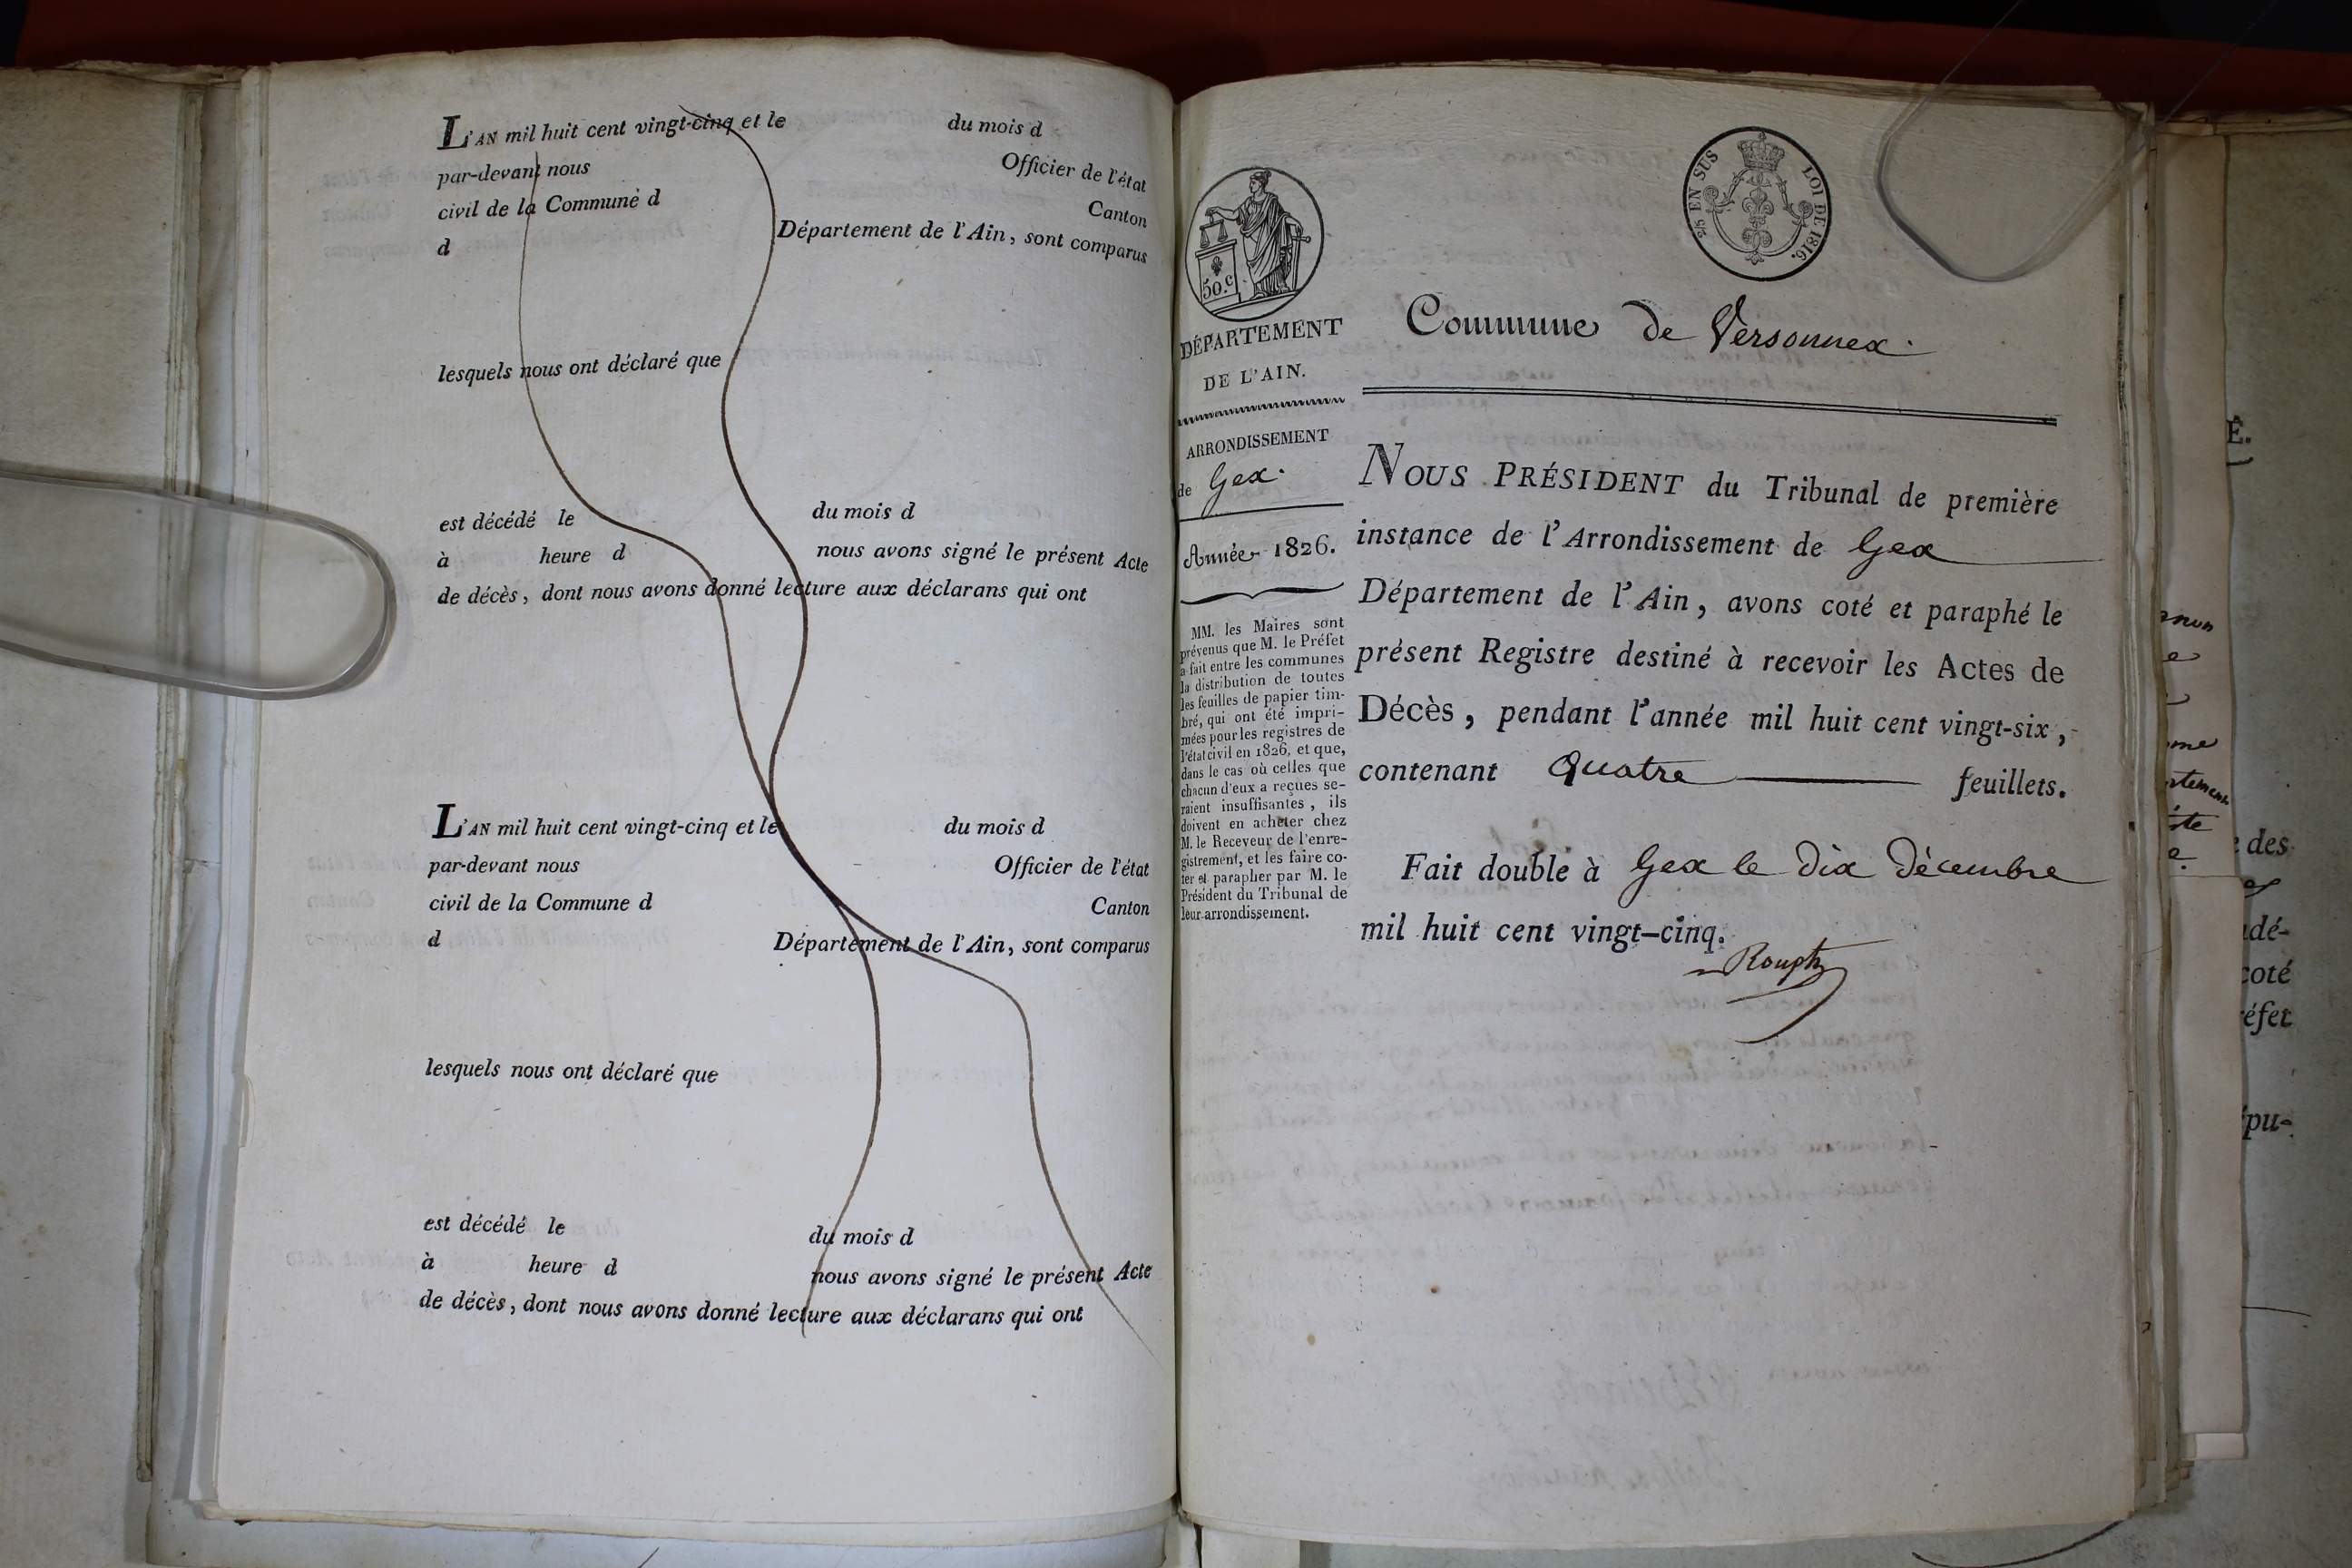 L'AN mil huit cent vingt-cinq et le du mois d
par-devant nous Officier de l'état
civil de la Commune d Canton
d Département de l'Ain, sont comparus
lesquels nous ont déclaré que
est décédé le du mois d
à heure d nous avons signé le présent Acte
de décès, dont nous avons donné lecture aux déclarans qui ont
L'AN mil huit cent vingt-cinq et le du mois d
par-devant nous Officier de l'état
civil de la Commune d Canton
d Département de l'Ain, sont comparus
lesquels nous ont déclaré que
est décédé le du mois d
à heure d nous avons signé le présent Acte
de décès, dont nous avons donné lecture aux déclarans qui ont
50.c
DÉPARTEMENT
DE L'AIN.
ARRONDISSEMENT
de Gex.
Année 1826.
MM. les Maires sont
prévenus que M. le Préfet
a fait entre les communes
la distribution de toutes
les feuilles de papier tim-
bré, qui ont été impri-
mées pour les registres de
l'état civil en 1826, et que,
dans le cas où celles que
chacun d'eux a reçues se-
raient insuffisantes, ils
doivent en acheter chez
M. le Receveur de l'enre-
gistrement, et les faire co-
ter et parapher par M. le
Président du Tribunal de
leur arrondissement.
EN SUS LOI DE 1816.
Commune de Versonnex.
NOUS PRÉSIDENT du Tribunal de première
instance de l'Arrondissement de Gex
Département de l'Ain, avons coté et paraphé le
présent Registre destiné à recevoir les Actes de
Décès, pendant l'année mil huit cent vingt-six,
contenant Quatre feuillets.
Fait double à Gex le Dix Décembre
mil huit cent vingt-cinq.
des
dé-
coté
éfet
pu-